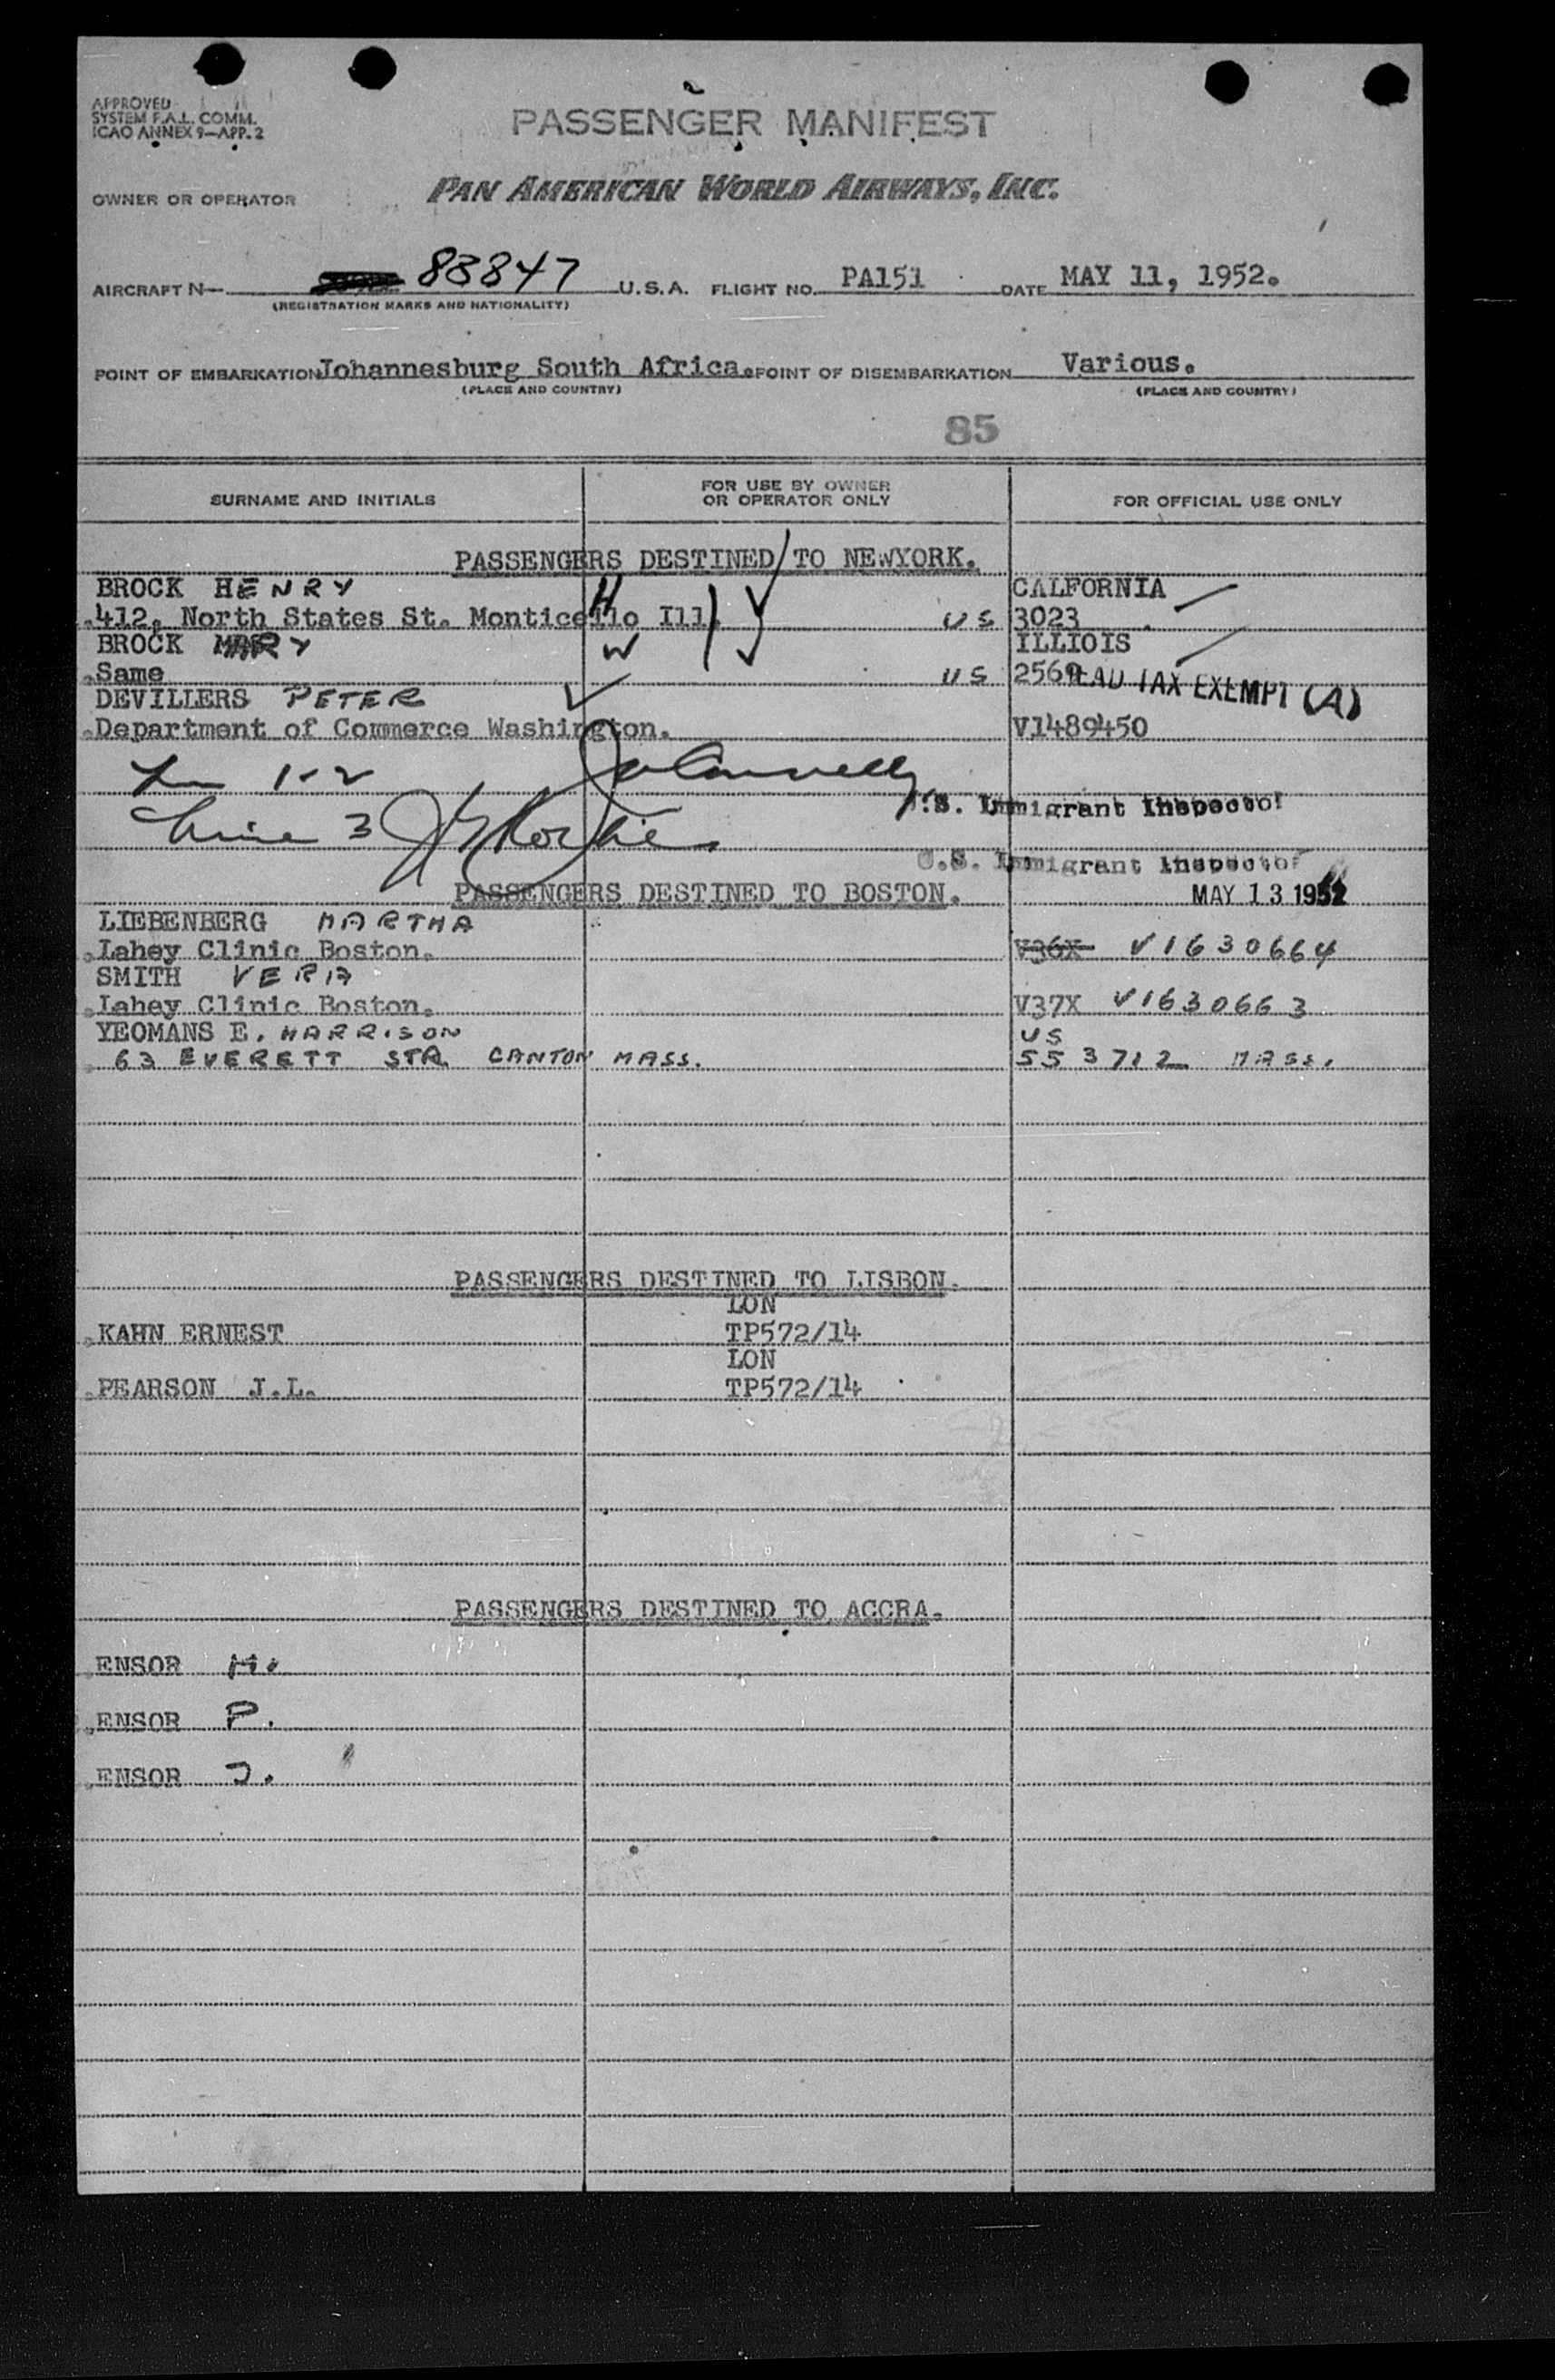 APPROVED
SYSTEM F.A.L. COMM.
ICAO ANNEX 9—APP. 2
PASSENGER MANIFEST
OWNER OR OPERATOR PAN AMERICAN WORLD AIRWAYS, INC.
AIRCRAFT N— 83847 U.S.A. FLIGHT NO. PA151 DATE MAY 11, 1952.
(REGISTRATION MARKS AND NATIONALITY)
POINT OF EMBARKATION Johannesburg South Africa. POINT OF DISEMBARKATION Various.
(PLACE AND COUNTRY) (PLACE AND COUNTRY)
85
SURNAME AND INITIALS FOR USE BY OWNER OR OPERATOR ONLY FOR OFFICIAL USE ONLY
PASSENGERS DESTINED TO NEWYORK.
BROCK HENRY H CALFORNIA
.412, North States St. Monticello Ill. US 3023
BROCK MARY W ILLIOIS
.Same US 2569 HEAD TAX EXEMPT (A)
DEVILLERS PETER
.Department of Commerce Washington. V1489450
1-2
U.S. Immigrant Inspector
Line 3
U.S. Immigrant Inspector
PASSENGERS DESTINED TO BOSTON. MAY 13 1952
LIEBENBERG MARTHA
.Lahey Clinic Boston. V36X V1630664
SMITH VERA
.Lahey Clinic Boston. V37X V1630663
YEOMANS E. HARRISON US
. 63 EVERETT STR. CANTON MASS. 553712 MASS.
PASSENGERS DESTINED TO LISBON.
LON
.KAHN ERNEST TP572/14
LON
.PEARSON J.L. TP572/14
PASSENGERS DESTINED TO ACCRA.
.ENSOR H.
.ENSOR P.
.ENSOR J.